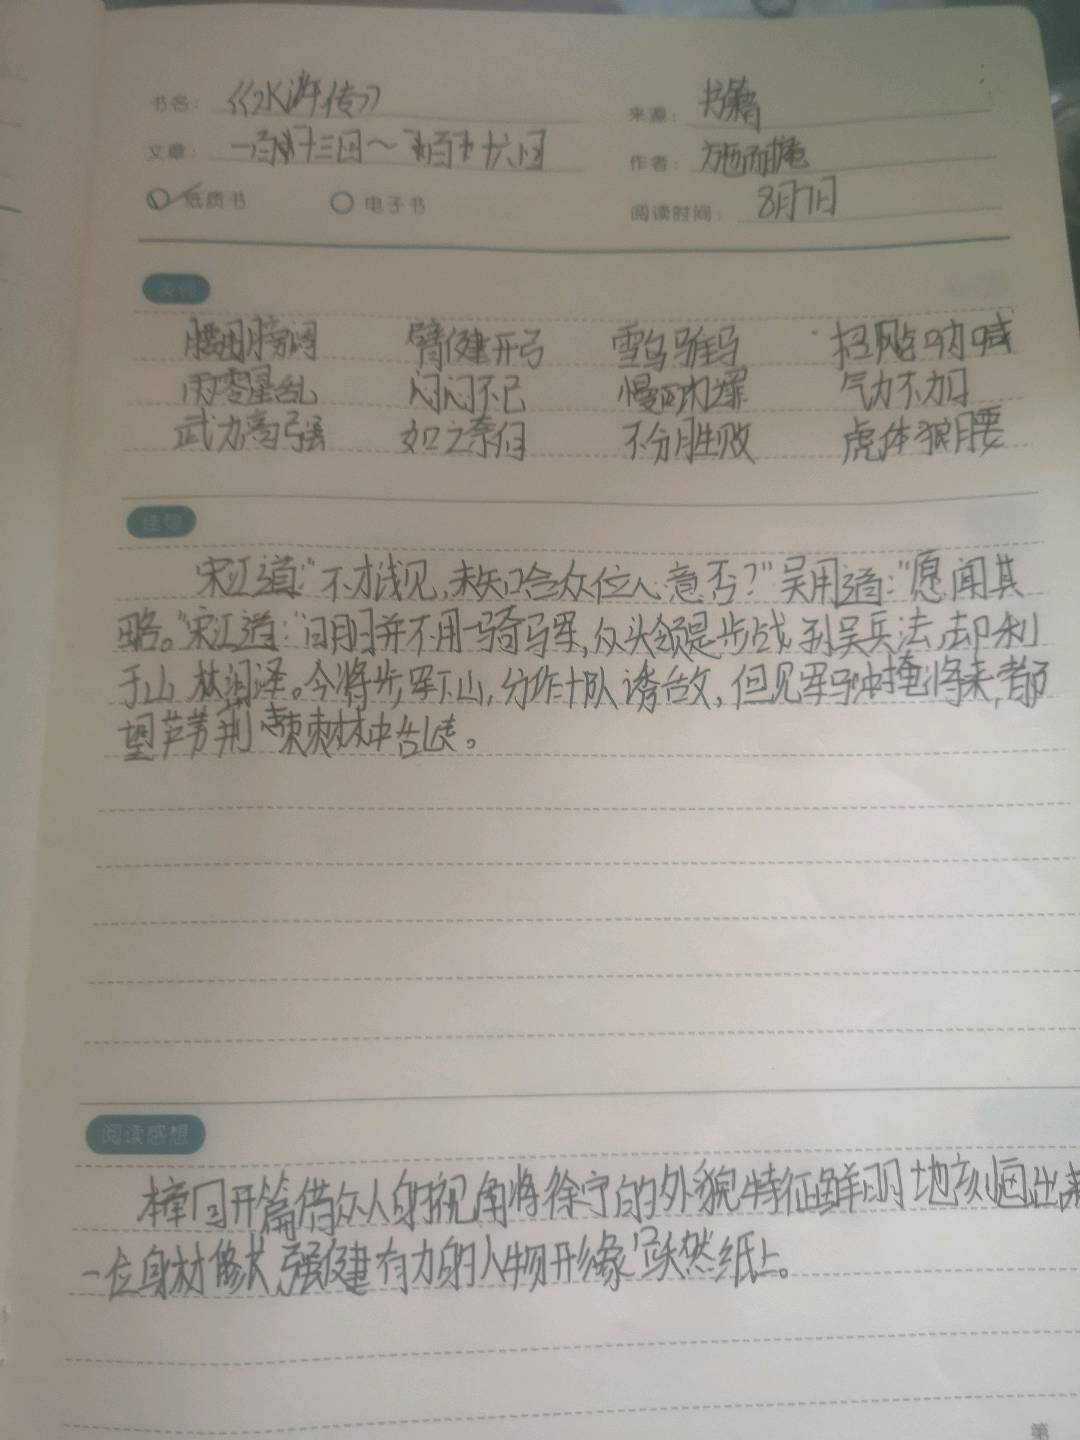 书名：《水浒传》 来源：书籍
文章： 作者：施耐庵
纸质书 电子书 阅读时间：8月7日
腰围膀阔 臂健开弓 雪乌骓马 招飐呐喊
雨零星乱 闷闷不已 气力不加
武力高强 如之奈何 不分胜败 虎体狼腰
佳句
宋江道："不才浅见，未知合众位人意否？"吴用道："愿闻其
略。"宋江道："明日并不用一骑马军，众头领是步战，孙吴兵法，却利
于山林沮泽。今将步军下山，分作十队诱敌，但见军马冲掩将来，都
望芦苇荆棘林中乱走。
阅读感想
本章回开篇借众人的视角将徐宁的外貌特征鲜明地刻画出来
一位身材修长，强健有力的人物形象跃然纸上。
第